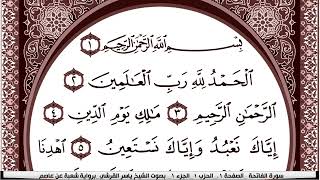 بِسْمِ ٱللَّهِ ٱلرَّحْمَٰنِ ٱلرَّحِيمِ ١
ٱلْحَمْدُ لِلَّهِ رَبِّ ٱلْعَٰلَمِينَ ٢
ٱلرَّحْمَٰنِ ٱلرَّحِيمِ ٣ مَٰلِكِ يَوْمِ ٱلدِّينِ ٤
إِيَّاكَ نَعْبُدُ وَإِيَّاكَ نَسْتَعِينُ ٥ ٱهْدِنَا
سورة الفاتحة الصفحة ١ الحزب ١ الجزء ١ بصوت الشيخ ياسر القرشي برواية شعبة عن عاصم